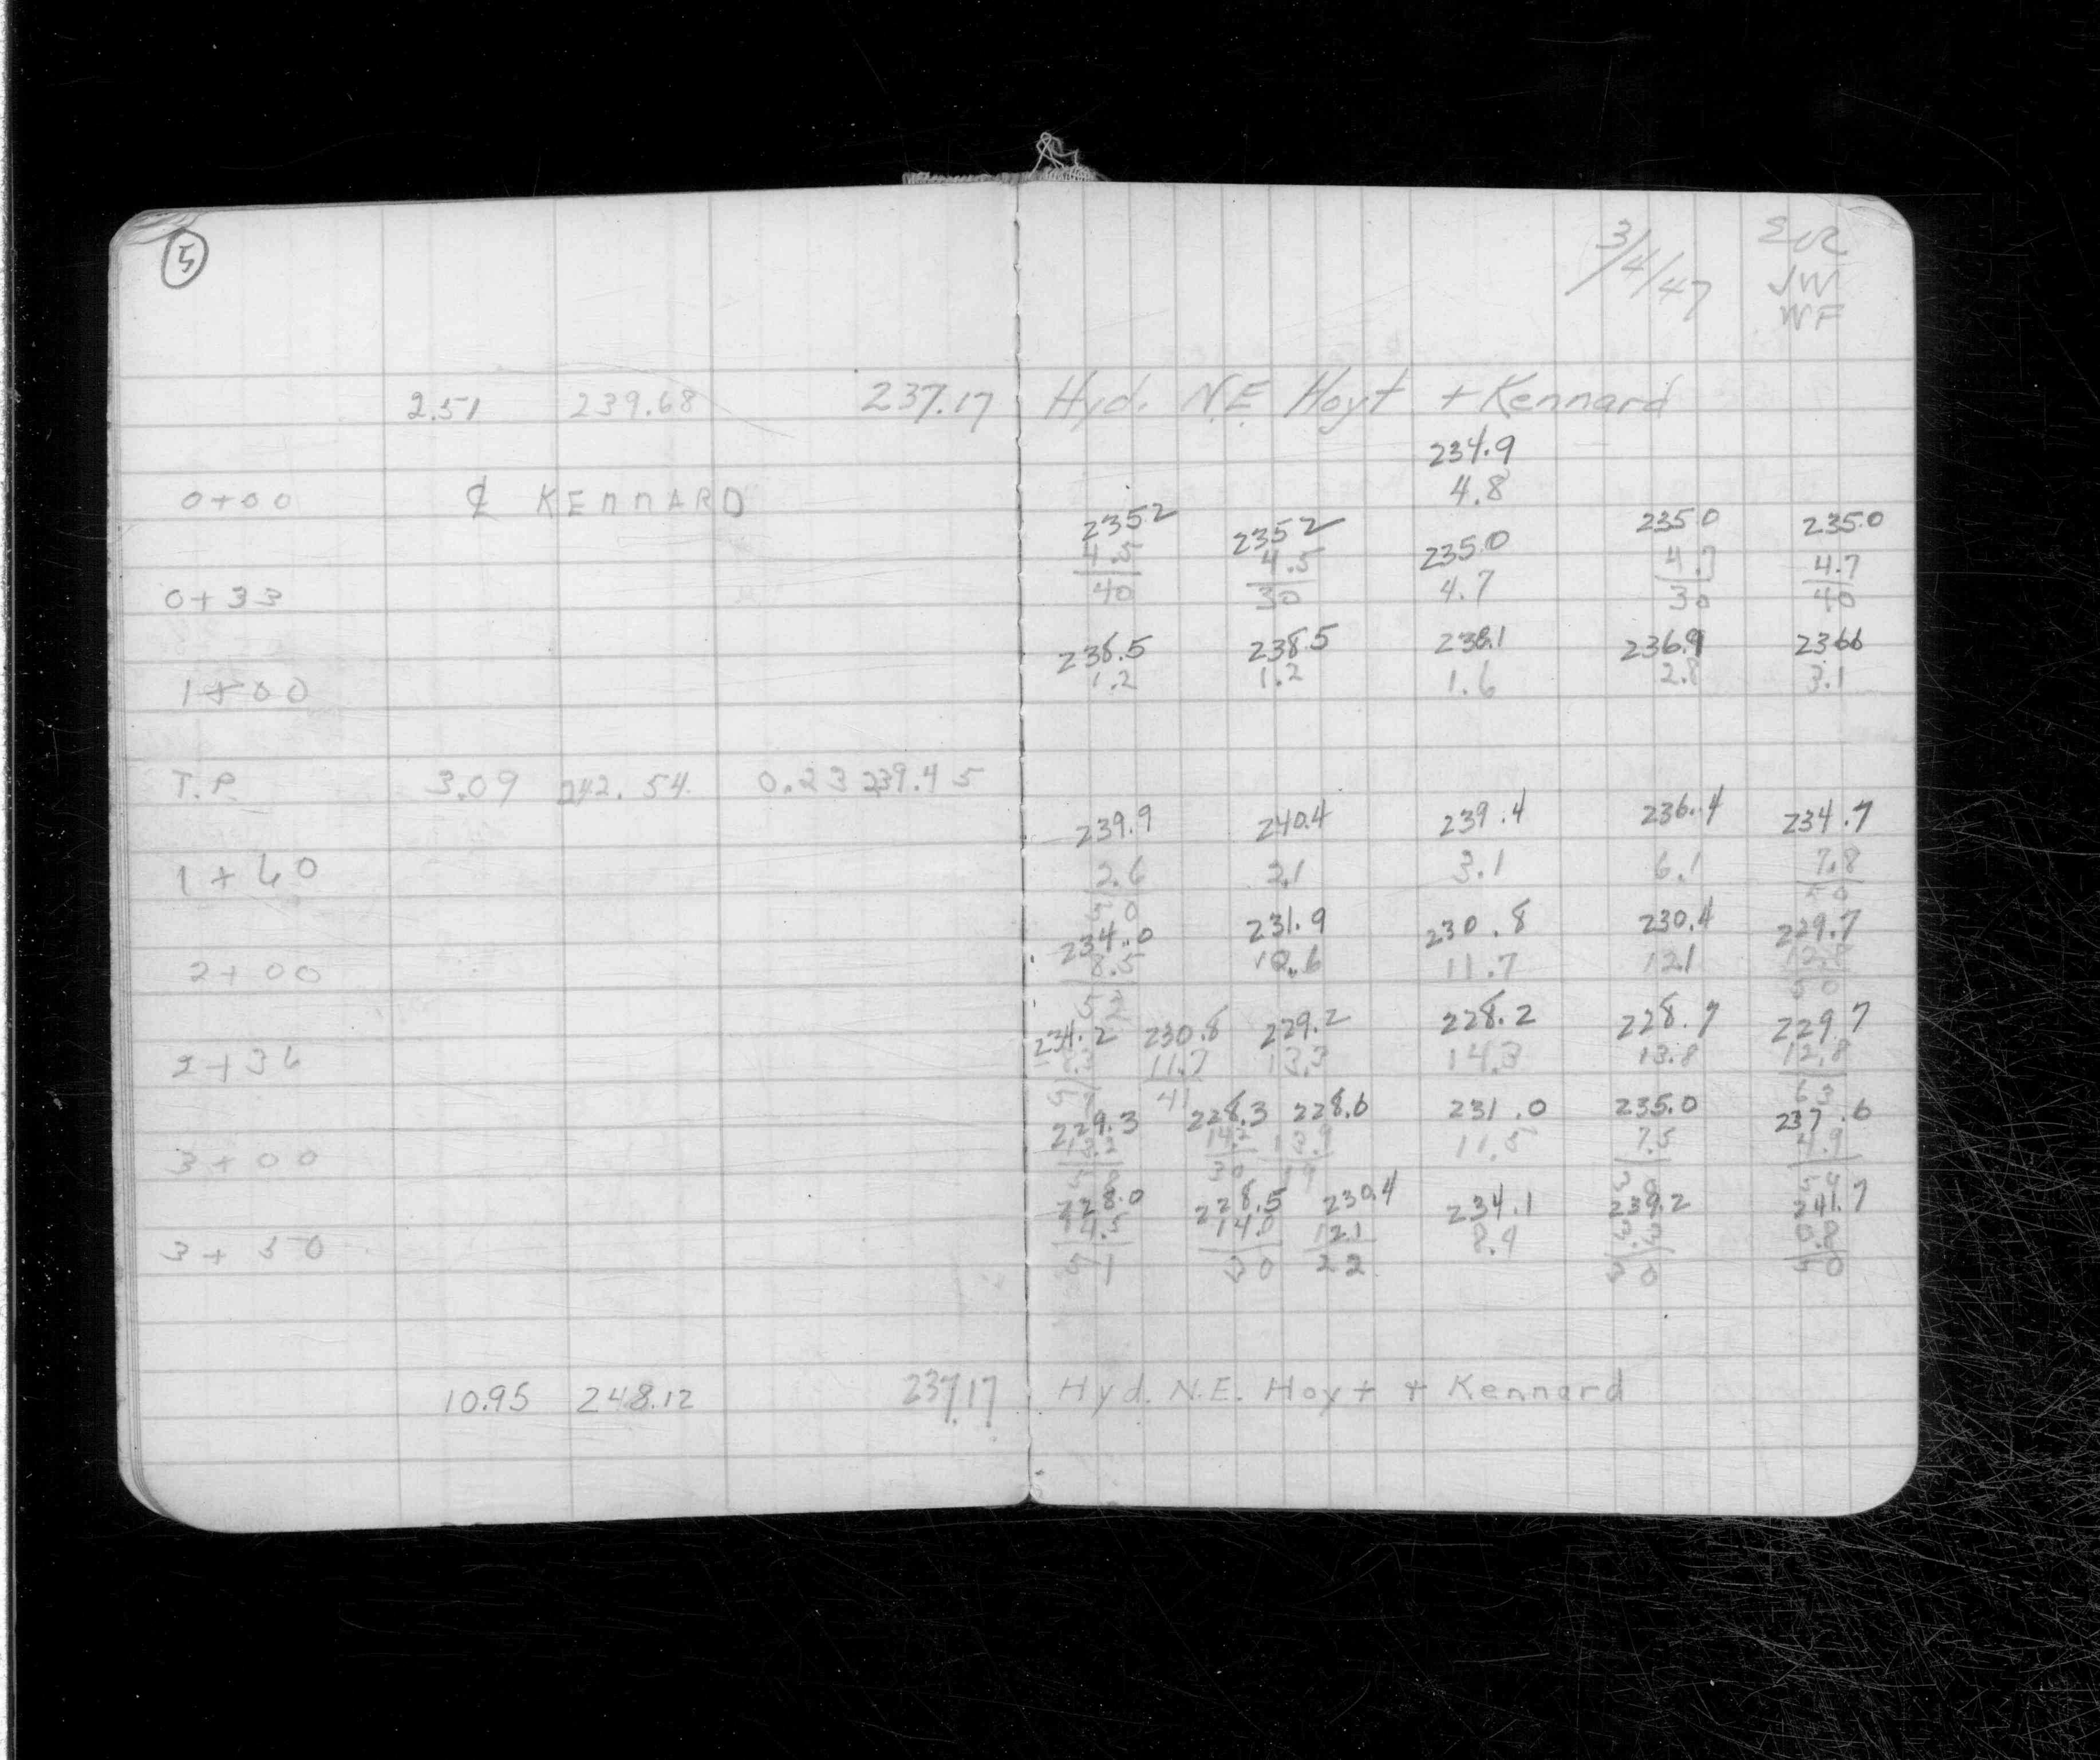 5
3/4/47
JW
WF
2.51 239.68 237.17 Hyd. N.E. Hoyt + Kennard
234.9
0+00 ℄ KENNARD 4.8
2352 2352 2350 2350 2350
4.5 4.5 4.7 4.7 4.7
0+33 40 30 30 40
238.5 238.5 238.1 236.9 2366
1+00 1.2 1.2 1.6 2.8 3.1
T.P. 3.09 242.54 0.23 239.45
239.9 240.4 239.4 236.4 234.7
1+60 2.6 2.1 3.1 6.1 7.8
50 50
234.0 231.9 230.8 230.4 229.7
2+00 8.5 10.6 11.7 12.1 12.8
52 50
234.2 230.8 229.2 228.2 228.7 229.7
2+36 8.3 11.7 13.3 14.3 13.8 12.8
41 63
229.3 228.3 228.6 231.0 235.0 237.6
3+00 13.2 14.2 13.9 11.5 7.5 4.9
50 30 19 30
228.0 228.5 230.4 234.1 239.2 241.7
3+50 14.5 14.0 12.1 8.4 3.3 0.8
51 30 22 30 50
10.95 248.12 237.17 Hyd. N.E. Hoyt + Kennard